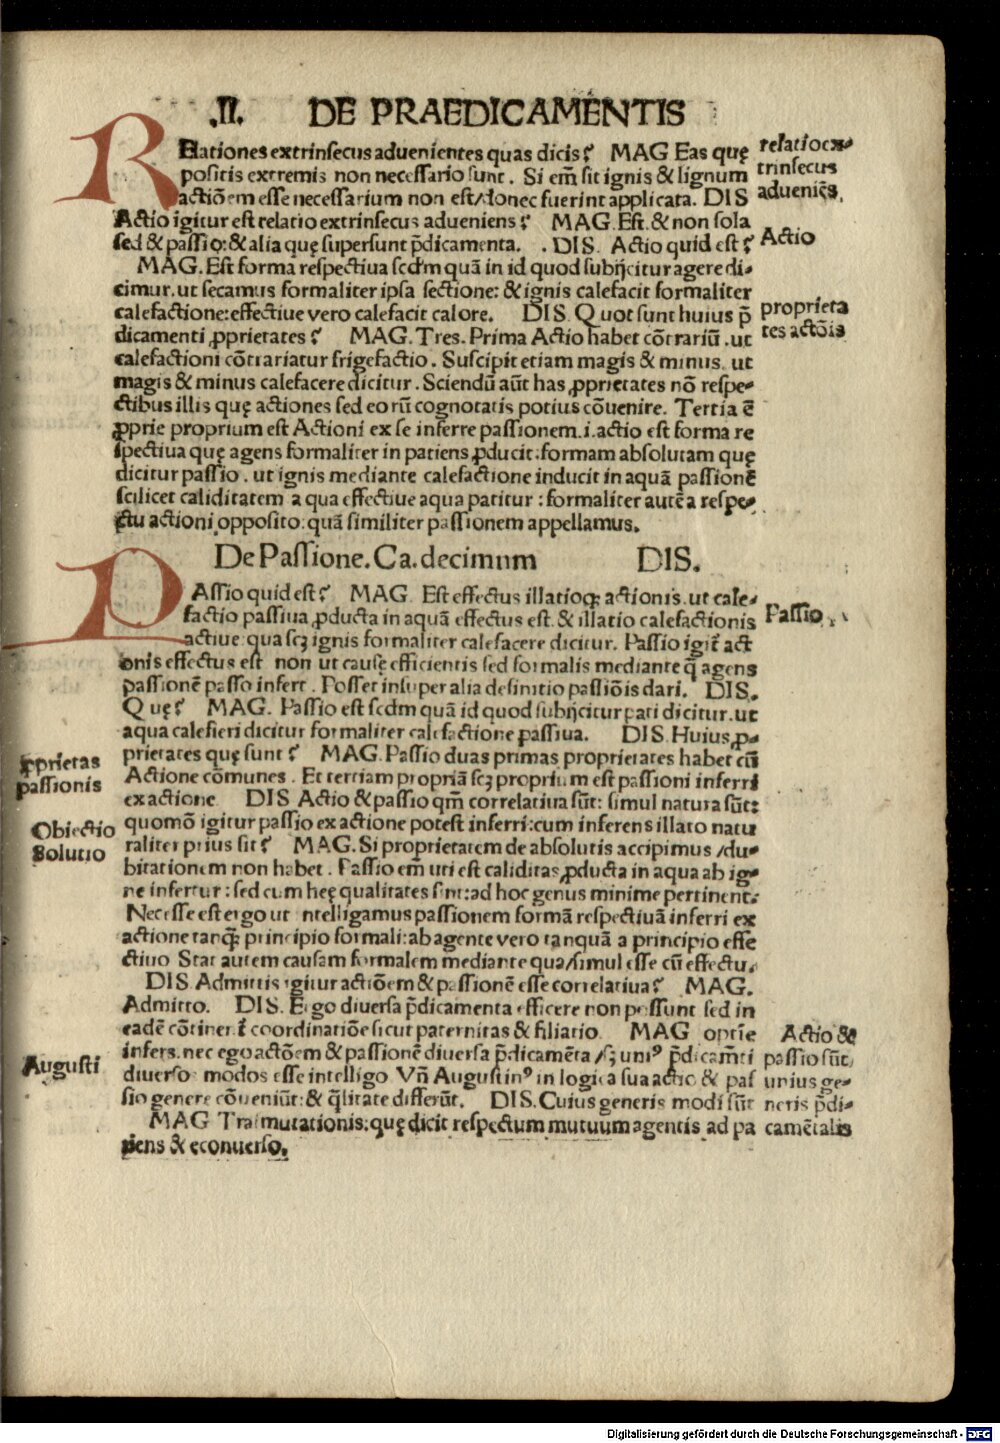 .II. DE PRAEDICAMENTIS
RElationes extrinsecus aduenientes quas dicis? MAG Eas quę
positis extremis non necessario sunt. Si em̄ sit ignis & lignum
actiōem esse necessarium non est/donec fuerint applicata. DIS
Actio igitur est relatio extrinsecus adueniens? MAG. Est. & non sola
sed & passio: & alia quę supersunt p̄dicamenta. . DIS. Actio quid est?
relatio ex-
trinsecus
adueniēs.
Actio
MAG. Est forma respectiua scd̄m quā in id quod subijcitur agere di-
cimur. ut secamus formaliter ipsa sectione: & ignis calefacit formaliter
calefactione: effectiue vero calefacit calore. DIS. Quot sunt huius p̄
dicamenti ꝓprietates? MAG. Tres. Prima Actio habet cōtrariū. ut
proprieta
tes actōis
calefactioni cōtrariatur frigefactio. Suscipit etiam magis & minus. ut
magis & minus calefacere dicitur. Sciendū aūt has ꝓprietates nō respe-
ctibus illis quę actiones sed eorū cognotatis potius cōuenire. Tertia ē
ꝓprie proprium est Actioni ex se inferre passionem .i. actio est forma re
spectiua quę agens formaliter in patiens ꝓducit: formam absolutam quę
dicitur passio. ut ignis mediante calefactione inducit in aquā passionē
scilicet caliditatem a qua effectiue aqua patitur: formaliter autē a respe-
ctu actioni opposito: quā similiter passionem appellamus.
De Passione. Ca. decimum DIS.
PAssio quid est? MAG Est effectus illatioqꝫ actionis. ut cale-
factio passiua ꝓducta in aquā effectus est & illatio calefactionis
actiue qua scꝫ ignis formaliter calefacere dicitur. Passio igit̄ act
Passio
onis effectus est non ut causę efficientis sed formalis mediante q̄ agens
passionē passo infert. Posset insuper alia definitio passiōis dari. DIS.
Quę? MAG. Passio est scd̄m quā id quod subijcitur pati dicitur. ut
aqua calefieri dicitur formaliter calefactione passiua. DIS. Huius ꝓ-
prietates quę sunt? MAG. Passio duas primas proprietates habet cū
Actione cōmunes. Et tertiam propriā scꝫ proprium est passioni inferri
ex actione DIS Actio & passio qm̄ correlatiua sūt: simul natura sūt:
ꝓprietas
passionis
quomō igitur passio ex actione potest inferri: cum inferens illato natu
raliter prius sit? MAG. Si proprietatem de absolutis accipimus /du-
Obiectio
Solutio
bitationem non habet. Passio em̄ uti est caliditas ꝓducta in aqua ab ig-
ne infertur: sed cum heę qualitates sint: ad hoc genus minime pertinent.
Necesse est ergo ut intelligamus passionem formā respectiuā inferri ex
actione tanq̄ꝫ principio formali: ab agente vero tanquā a principio effe
ctiuo Stat autem causam formalem mediante qua/simul esse cū effectu.
DIS Admittis igitur actiōem & passionē esse correlatiua? MAG.
Admitto. DIS. Ergo diuersa p̄dicamenta efficere non possunt sed in
eadē cōtinet̄ coordinatiōe sicut paternitas & filiatio MAG optīe
infers. nec ego actōem & passionē diuersa p̄dicamēta /sꝫ uniꝰ p̄dicam̄ti
diuersos modos esse intelligo Vn̄ Augustinꝰ in logica sua actio & pas
sio genere cōueniūt: & q̄litate differūt. DIS. Cuius generis modi sūt
Augusti
Actio &
passio sūt
unius ge-
neris p̄di-
camētalis
MAG Trasmutationis: quę dicit respectum mutuum agentis ad pa
tiens & econuerso.
Digitalisierung gefördert durch die Deutsche Forschungsgemeinschaft - DFG